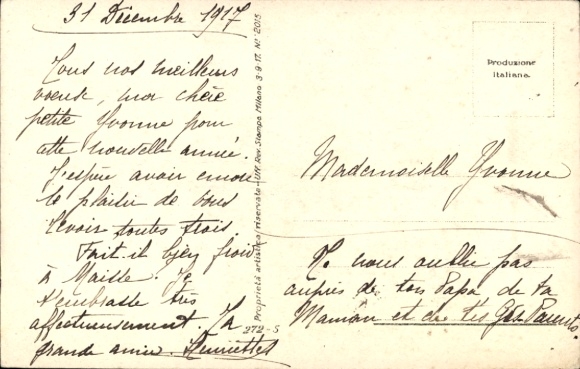 31 Décembre 1917
Tous nos meilleurs
voeux, ma chère
petite Yvonne pour
cette nouvelle année.
J'espère avoir encore
le plaisir de vous
revoir toutes trois.
Fait-il bien froid
à Maisse. Je
t'embrasse très
affectueusement. Ta
grande amie. Henriette
Proprietà artistica riservata - Uff. Rev. Stampa Milano 3-9-17. N° 2015
272-5
Produzione
italiana.
Mademoiselle Yvonne
Ne nous oublie pas
auprès de ton Papa, de ta
Maman et de tes Gds Parents.